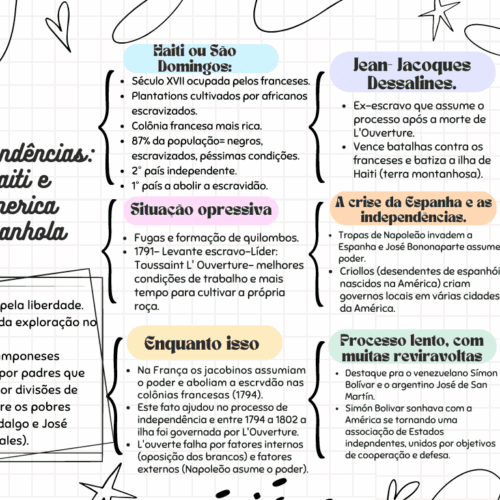 ndências:
aiti e
merica
anhola
pela liberdade.
da exploração no
mponeses
por padres que
or divisões de
re os pobres
dalgo e José
ales).
Haiti ou São
Domingos:
• Século XVII ocupada pelos franceses.
• Plantations cultivados por africanos
escravizados.
• Colônia francesa mais rica.
• 87% da população= negros,
escravizados, péssimas condições.
• 2° país independente.
• 1° país a abolir a escravidão.
Situação opressiva
• Fugas e formação de quilombos.
• 1791- Levante escravo-Líder:
Toussaint L' Ouverture- melhores
condições de trabalho e mais
tempo para cultivar a própria
roça.
Enquanto isso
• Na França os jacobinos assumiam
o poder e aboliam a escrvdão nas
colônias francesas (1794).
• Este fato ajudou no processo de
independência e entre 1794 a 1802 a
ilha foi governada por L'Ouverture.
• L'ouverte falha por fatores internos
(oposição dos brancos) e fatores
externos (Napoleão asume o poder).
Jean- Jacoques
Dessalines.
• Ex-escravo que assume o
processo após a morte de
L'Ouverture.
• Vence batalhas contra os
franceses e batiza a ilha de
Haiti (terra montanhosa).
A crise da Espanha e as
independências.
• Tropas de Napoleão invadem a
Espanha e José Bononoparte assume
poder.
• Criollos (desendentes de espanhói
nascidos na América) criam
governos locais em várias cidades
da América.
Processo lento, com
muitas reviravoltas
• Destaque pra o venezuelano Símon
Bolívar e o argentino José de San
Martín.
• Simón Bolivar sonhava com a
América se tornando uma
associação de Estados
indepndentes, unidos por objetivos
de cooperação e defesa.